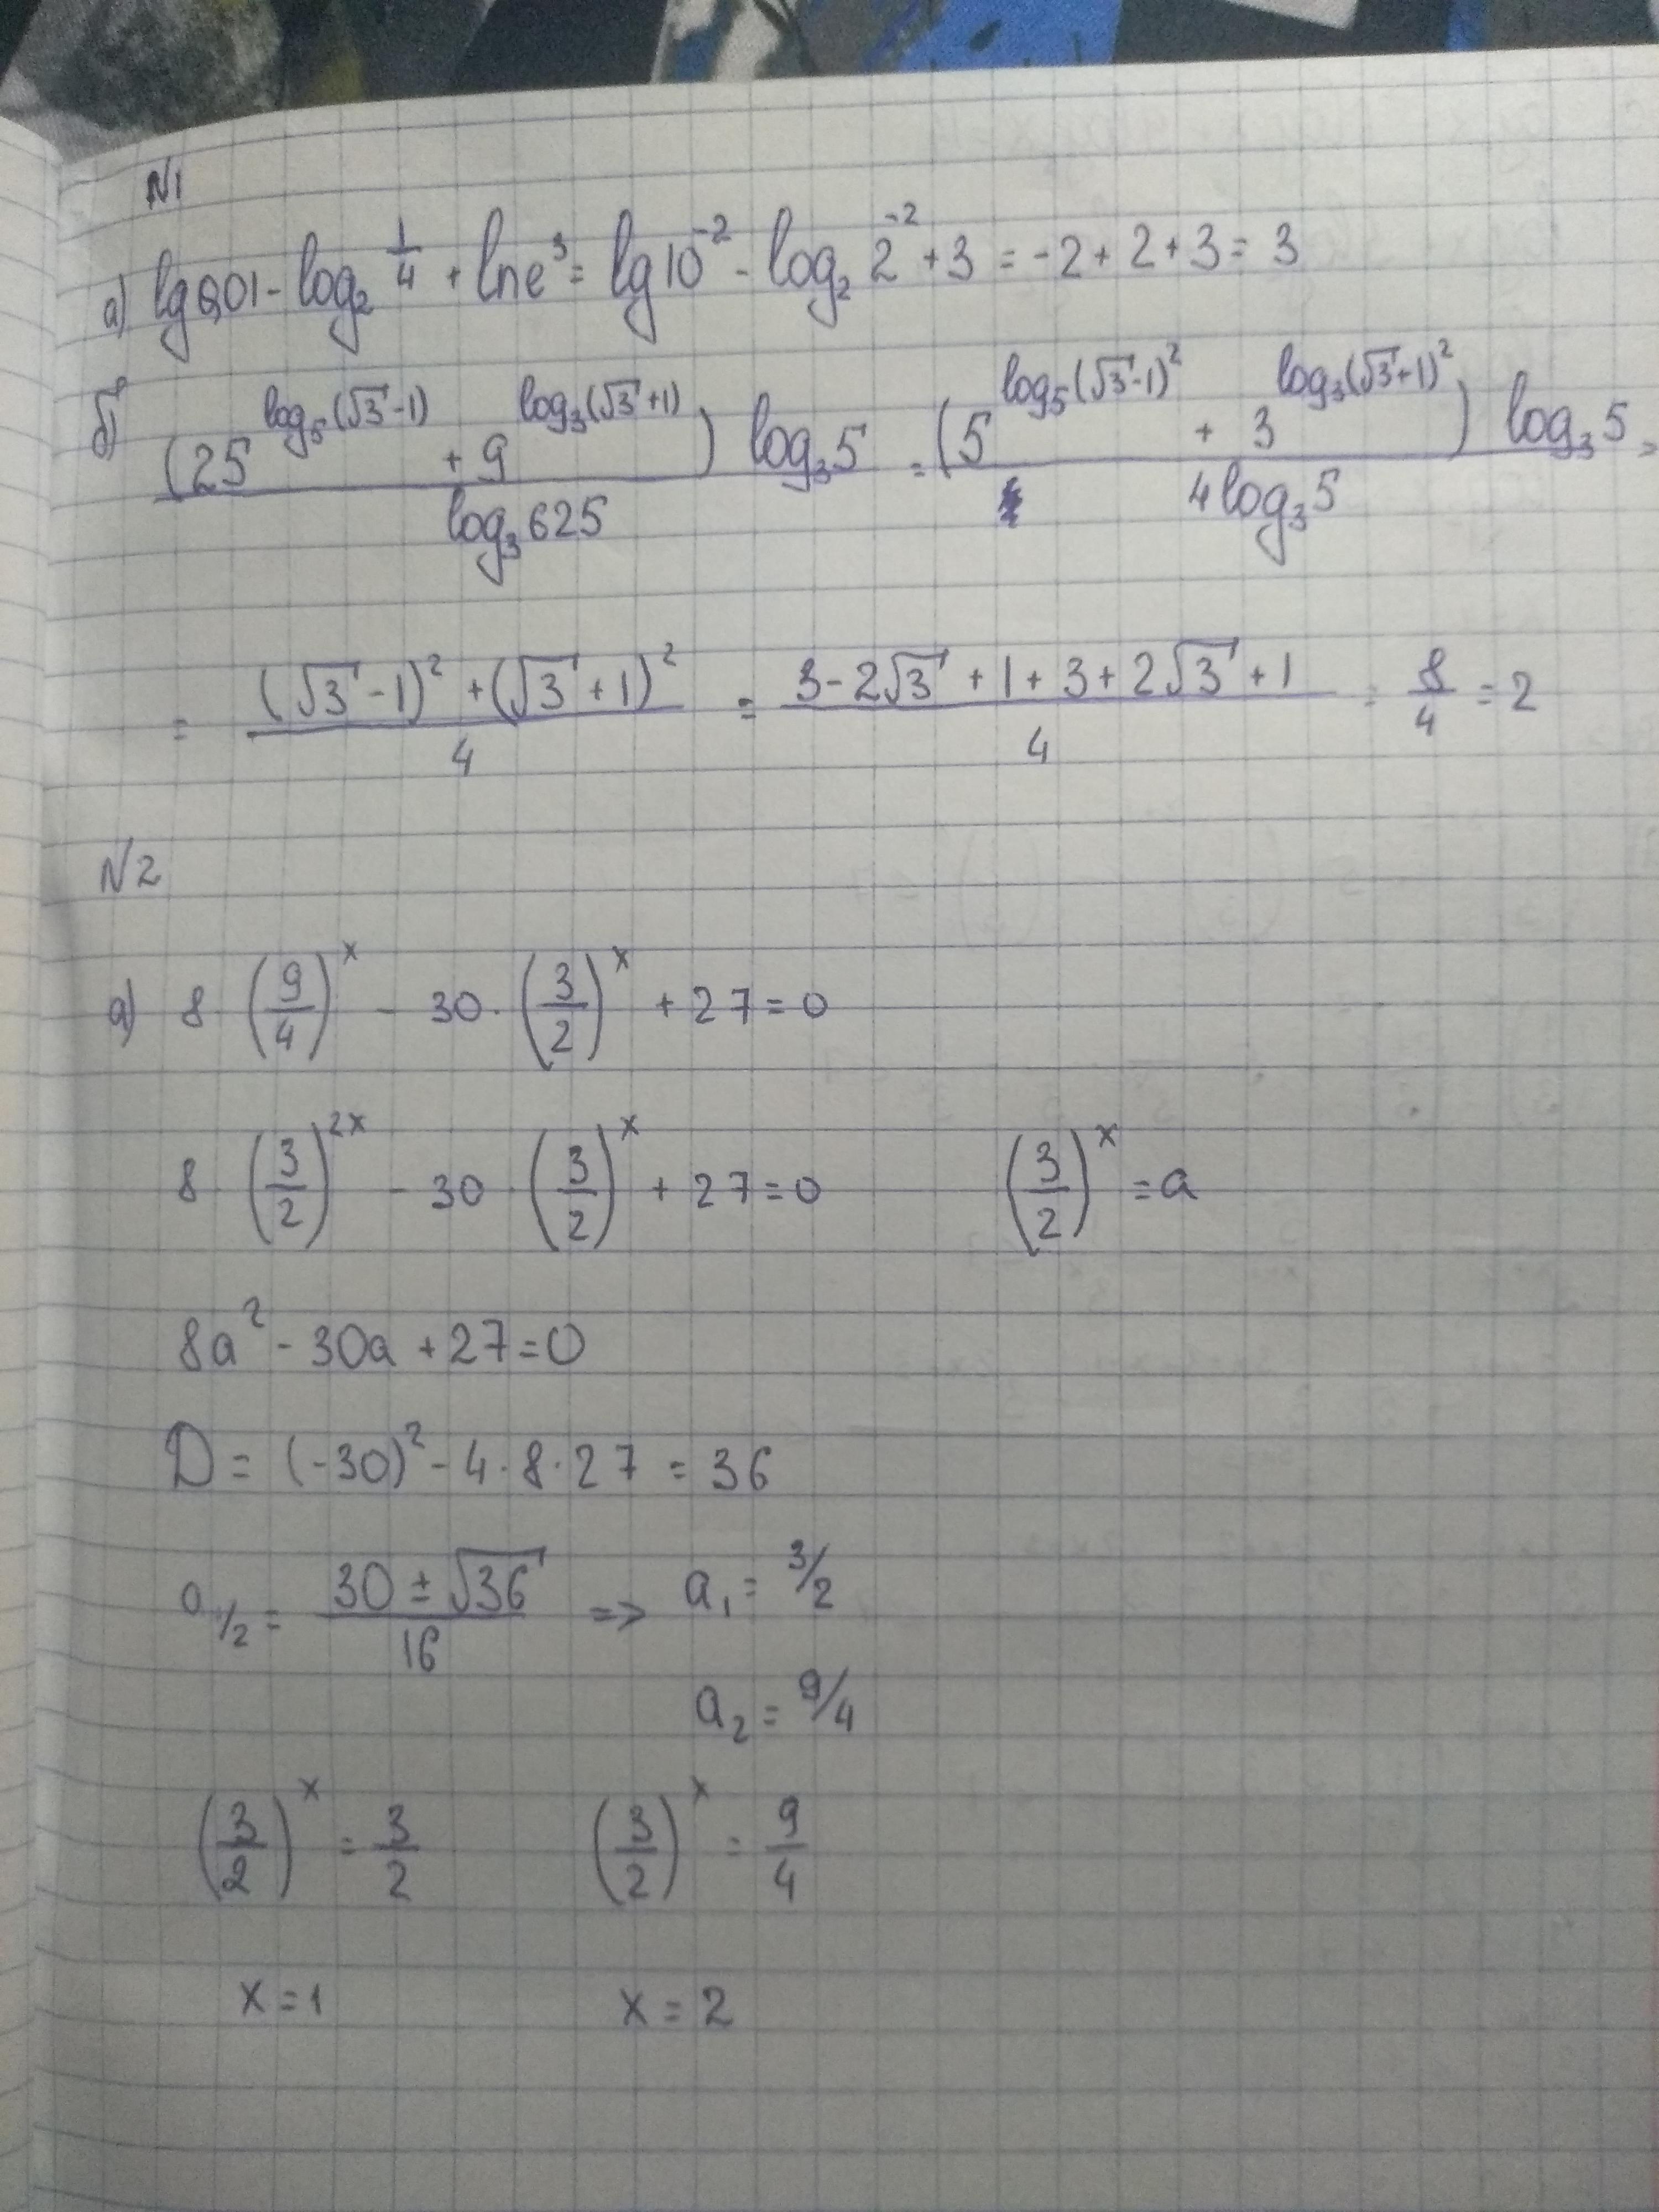 N1
а) lg 0,01 - log₂ 1/4 + ln e³ = lg 10⁻² - log₂ 2⁻² + 3 = -2 + 2 + 3 = 3
б) (25^(log₅(√3-1)) + 9^(log₃(√3+1))) log₃5 / log₃625 = (5^(log₅(√3-1)²) + 3^(log₃(√3+1)²)) log₃5 / 4log₃5 =
= ((√3-1)² + (√3+1)²) / 4 = (3-2√3+1+3+2√3+1) / 4 = 8/4 = 2
N2
а) 8 · (9/4)^x - 30 · (3/2)^x + 27 = 0
8 · (3/2)^2x - 30 · (3/2)^x + 27 = 0 (3/2)^x = a
8a² - 30a + 27 = 0
D = (-30)² - 4·8·27 = 36
a 1/2 = (30 ± √36) / 16 => a₁ = 3/2
a₂ = 9/4
(3/2)^x = 3/2 (3/2)^x = 9/4
x = 1 x = 2